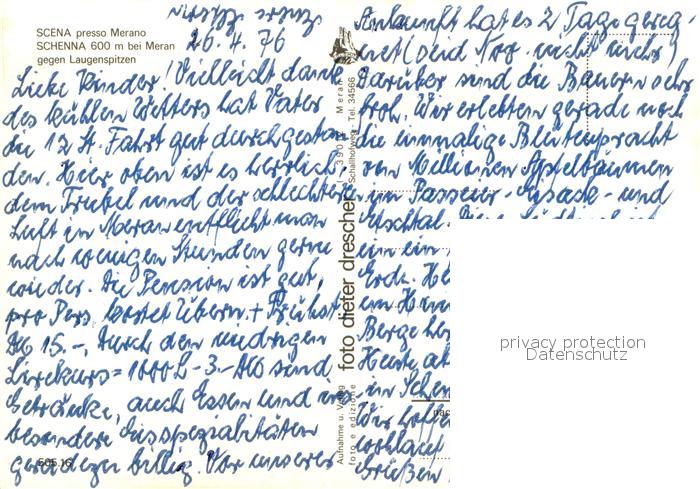 SCENA presso Merano
SCHENNA 600 m bei Meran
gegen Laugenspitzen
26. 4. 76
Liebe Kinder! Vielleicht dank
des kühlen Wetters hat Vater
die 12 St. Fahrt gut durchgestan
den. Hier oben ist es herrlich,
dem Trubel und der schlechteren
Luft in Meran entflieht man
nach wenigen Stunden gerne
wieder. Die Pension ist gut,
pro Pers. kostet Übern. + Frühst.
DM 15.-, durch den niedrigen
Lirekurs = 1000 L - 3.- DM sind
Getränke, auch Essen und ins
besondere Eisspezialitäten
geradezu billig. Vor unserer
505.16
foto dieter drescher
I 39012 Meran
Schallhofweg Tel. 34566
Aufnahme u. Verlag
foto e edizione
Ankunft hat es 2 Tage gereg
net (seid Nov. nicht mehr)
darüber sind die Bauern sehr
froh. Wir erlebten gerade noch
die einmalige Blütenpracht
von Millionen Apfelbäumen
im Passeier - Eisack - und
Etschtal.
ein ein
Erde.
Berge
Heute
in Schen
Wir hoffen
wohlauf
Grüßen
privacy protection
Datenschutz